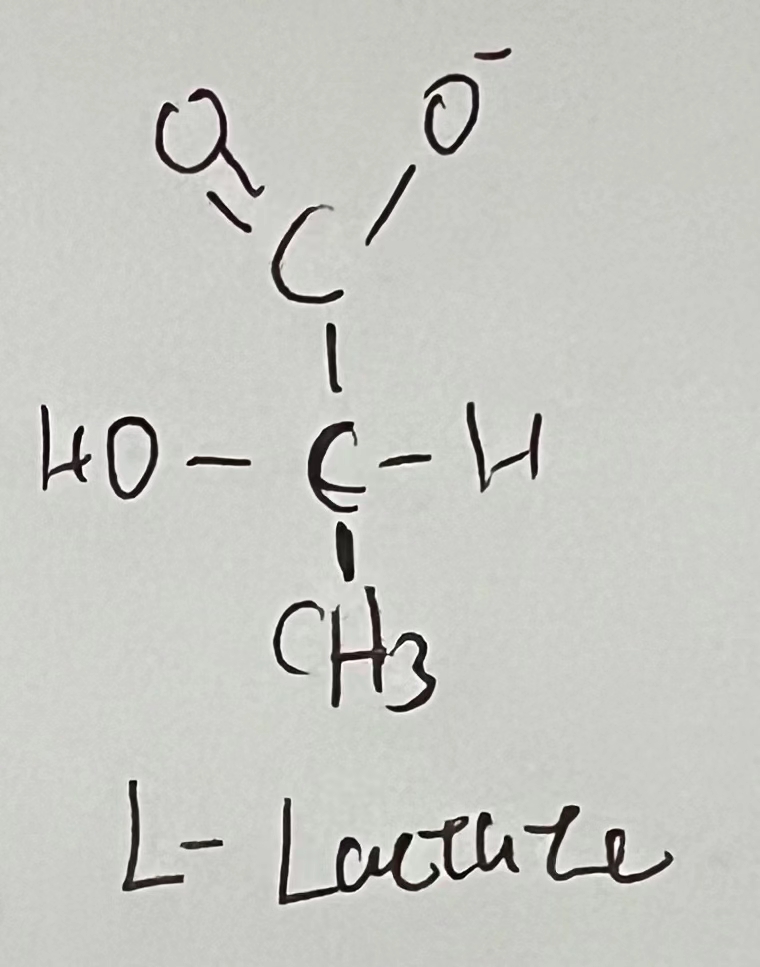 O O⁻
C
HO – C – H
CH3
L- Lactate